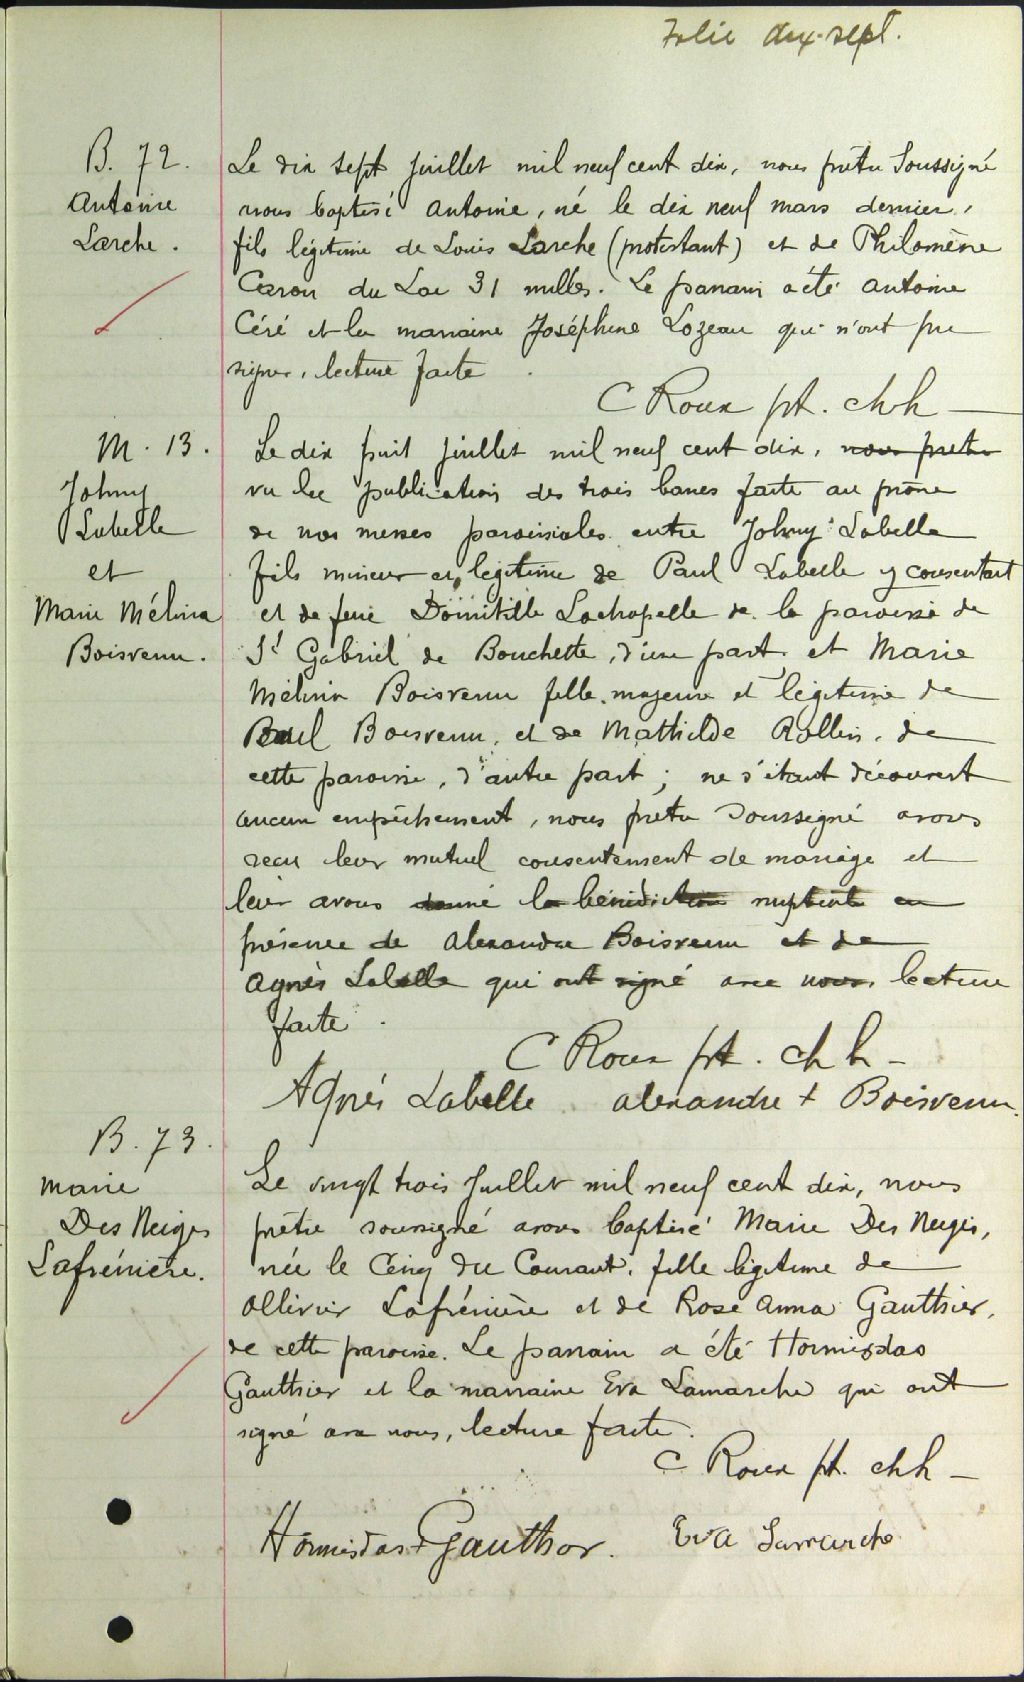 Folio dix-sept.
B. 72.
Antoine
Larche.
Le dix sept juillet mil neuf cent dix, nous prêtre Soussigné
avons baptisé Antoine, né le dix neuf mars dernier,
fils légitime de Louis Larche (protestant) et de Philomène
Caron du Lac 31 milles. Le parrain a été Antoine
Céré et la marraine Joséphine Lozeau qui n'ont pu
signer, lecture faite.
C Roux pt. chh
M. 13.
Johny
Labelle
et
Marie Mélina
Boisvenu.
Le dix huit juillet mil neuf cent dix, nous prêtre
vu la publication des trois bancs faite au prône
de nos messes paroissiales entre Johny Labelle
fils mineur et légitime de Paul Labelle y consentant
et de feue Domitille Lachapelle de la paroisse de
St Gabriel de Bouchette, d'une part, et Marie
Mélina Boisvenu fille majeure et légitime de
Paul Boisvenu, et de Mathilde Rollin, de
cette paroisse, d'autre part; ne s'étant découvert
aucun empêchement, nous prêtre Soussigné avons
reçu leur mutuel consentement de mariage et
leur avons donné la bénédiction nuptiale en
présence de Alexandre Boisvenu et de
Agnès Labelle qui ont signé avec nous, lecture
faite.
C Roux pt. chh
Agnés Labelle alexandre + Boisvenu.
B. 73.
Marie
Des Neiges
Lafrénière.
Le vingt trois juillet mil neuf cent dix, nous
prêtre soussigné avons baptisé Marie Des Neiges,
née le Cinq du Courant, fille légitime de
Ollivier Lafrénière et de Rose Anna Gauthier,
de cette paroisse. Le parrain a été Hormisdas
Gauthier et la marraine Eva Lamarche qui ont
signé avec nous, lecture faite.
C Roux pt. chh
Hormisdas Gauthier. Eva Lamarche